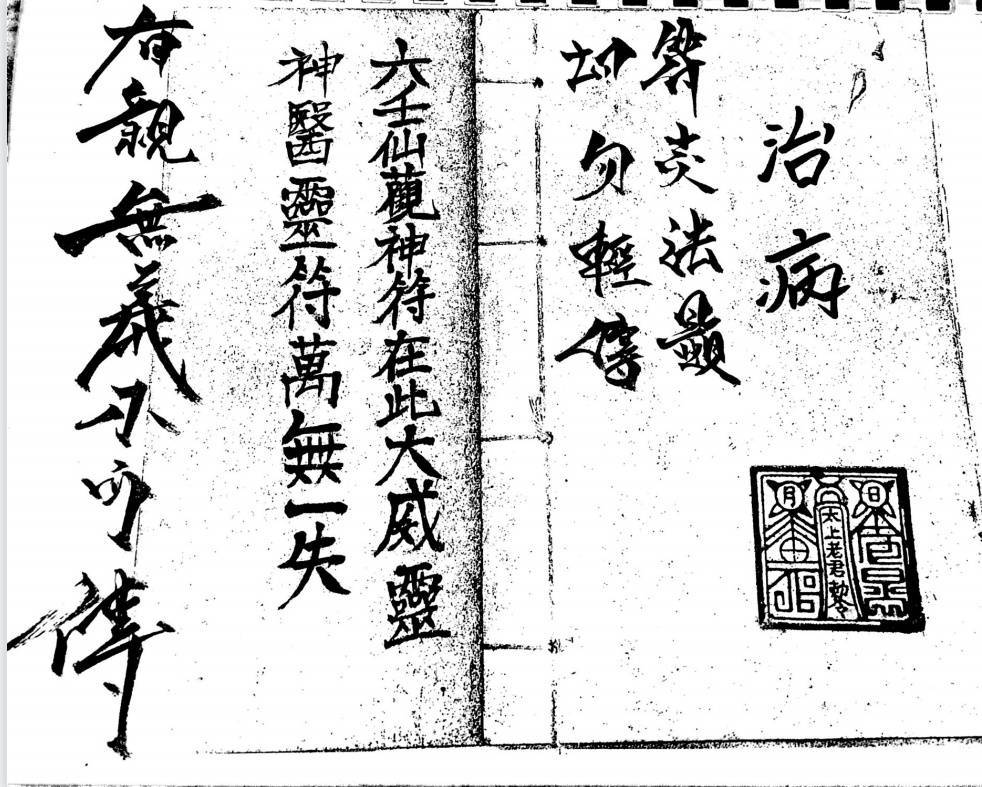 治病
法顯
切勿輕傳
六壬仙觀神符在此大威靈
神醫靈符萬無一失
有親無義不可傳
日
太上老君
月